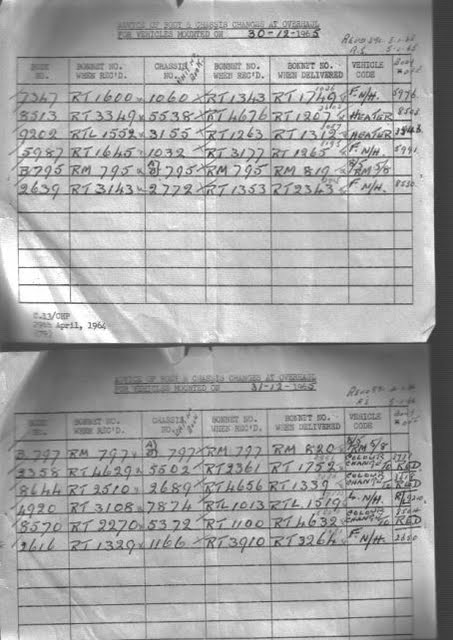 ADVICE OF BODY & CHASSIS CHANGES AT OVERHAUL
FOR VEHICLES MOUNTED ON 30-12-1965
BODY NO. BONNET NO. WHEN REC'D. CHASSIS NO. BONNET NO. WHEN REC'D. BONNET NO. WHEN DELIVERED VEHICLE CODE BODY
7347 RT 1600 1060 RT 1343 RT 1749 F. N/H. 5976
8513 RT 3349 5538 RT 4676 RT 1207 HEATER 8502
9202 RTL 1552 3155 RT 1263 RT 1312 HEATER
5987 RT 1645 1032 RT 3177 RT 1265 F. N/H. 5991
B.795 RM 795 795 RM 795 RM 819 RM 5/8
2639 RT 3143 2772 RT 1353 RT 2343 F N/H. 8530
C.33/CHP
29th April, 1964
(79)
ADVICE OF BODY & CHASSIS CHANGES AT OVERHAUL
FOR VEHICLES MOUNTED ON 31-12-1965
BODY NO. BONNET NO. WHEN REC'D. CHASSIS NO. BONNET NO. WHEN REC'D. BONNET NO. WHEN DELIVERED VEHICLE CODE BODY
B 797 RM 797 797 RM 797 RM 820 RM 5/8
3358 RT 4629 5502 RT 2361 RT 1752 COLOUR CHANGE TO RED
8644 RT 2510 2689 RT 4656 RT 1339 COLOUR CHANGE TO RED
4920 RT 3108 7874 RTL 1013 RTL 1519 N/H.
8570 RT 2270 5372 RT 1100 RT 4632 COLOUR CHANGE TO RED
2616 RT 1329 1166 RT 3910 RT 3264 F. N/H.